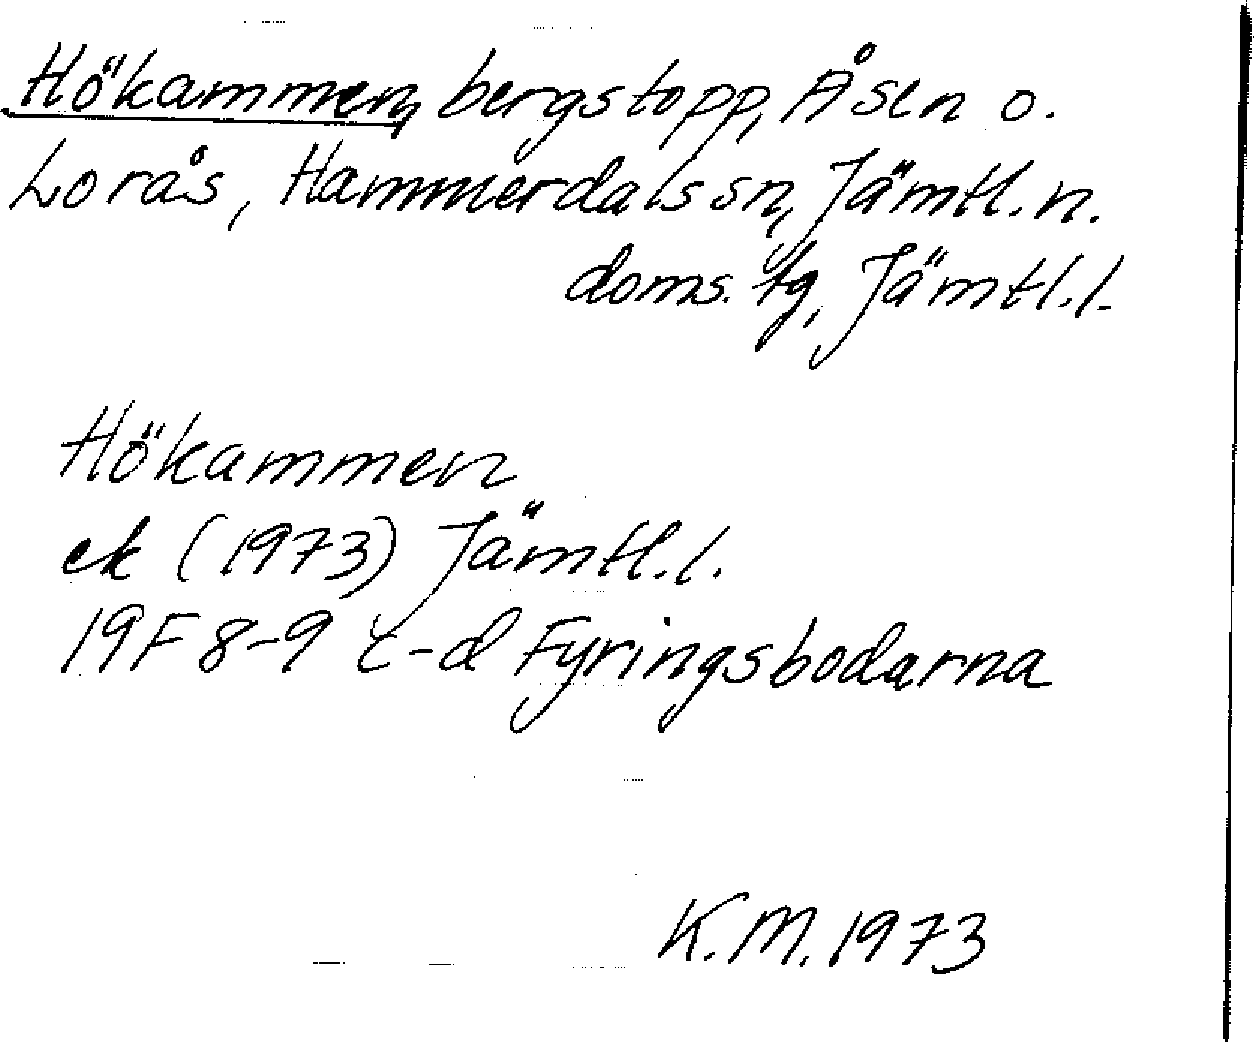 Hökammen, bergstopp, Åsen o.
Lorås, Hammerdals sn, Jämtl. n.
doms. tg, Jämtl. l.
Hökammen
ek (1973) Jämtl. l.
19F 8-9 c-d Fyringsbodarna
K.M. 1973